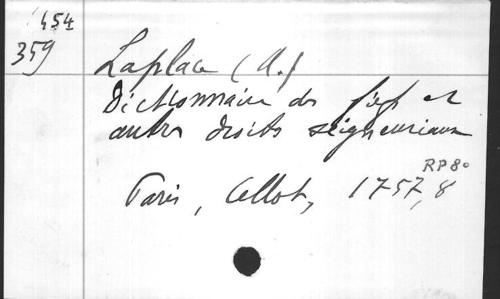 454
359
Laplace (A.)
Dictionnaire des fiefs et
autres droits seigneuriaux
RP 80
Paris, Cellot, 1757, 8